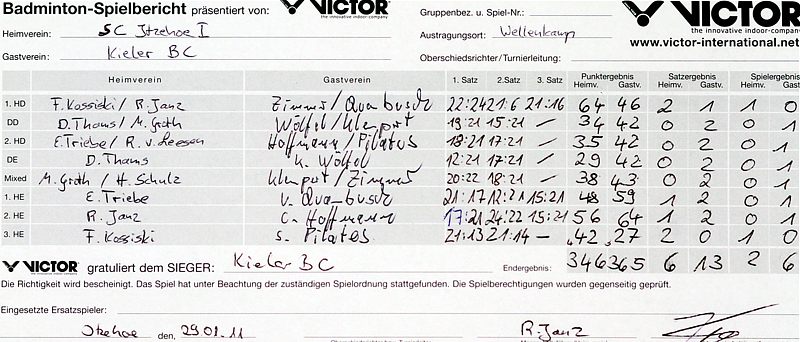 Badminton-Spielbericht präsentiert von: VICTOR Gruppenbez. u. Spiel-Nr.: VICTOR
the innovative indoor-company
Heimverein: SC Itzehoe I Austragungsort: Wellenkamp www.victor-international.net
Gastverein: Kieler BC Oberschiedsrichter/Turnierleitung:
Heimverein Gastverein 1. Satz 2.Satz 3. Satz Punktergebnis Satzergebnis Spielergebnis
Heimv. Gastv. Heimv. Gastv. Heimv. Gastv.
1. HD F. Kossiski / R. Janz Zimmer/Quabusch 22:24 21:6 21:16 64 46 2 1 1 0
DD D. Thams / M. Groth Wölfel/Klenport 19:21 15:21 — 34 42 0 2 0 1
2. HD E. Triebe / R. v. Leesen Hoffmann/Pilates 18:21 17:21 — 35 42 0 2 0 1
DE D. Thams K. Wölfel 12:21 17:21 — 29 42 0 2 0 1
Mixed M. Groth / H. Schulz Klenport/Zimmer 20:22 18:21 — 38 43 0 2 0 1
1. HE E. Triebe V. Quabusch 21:17 12:21 15:21 48 59 1 2 0 1
2. HE R. Janz C. Hoffmann 17:21 24:22 15:21 56 64 1 2 0 1
3. HE F. Kossiski S. Pilates 21:13 21:14 — 42 27 2 0 1 0
VICTOR gratuliert dem SIEGER: Kieler BC Endergebnis: 346 365 6 13 2 6
Die Richtigkeit wird bescheinigt. Das Spiel ist unter Beachtung der zuständigen Spielordnung stattgefunden. Die Spielberechtigungen wurden gegenseitig geprüft.
Eingesetzte Ersatzspieler:
Itzehoe den, 29.01.11 R. Janz